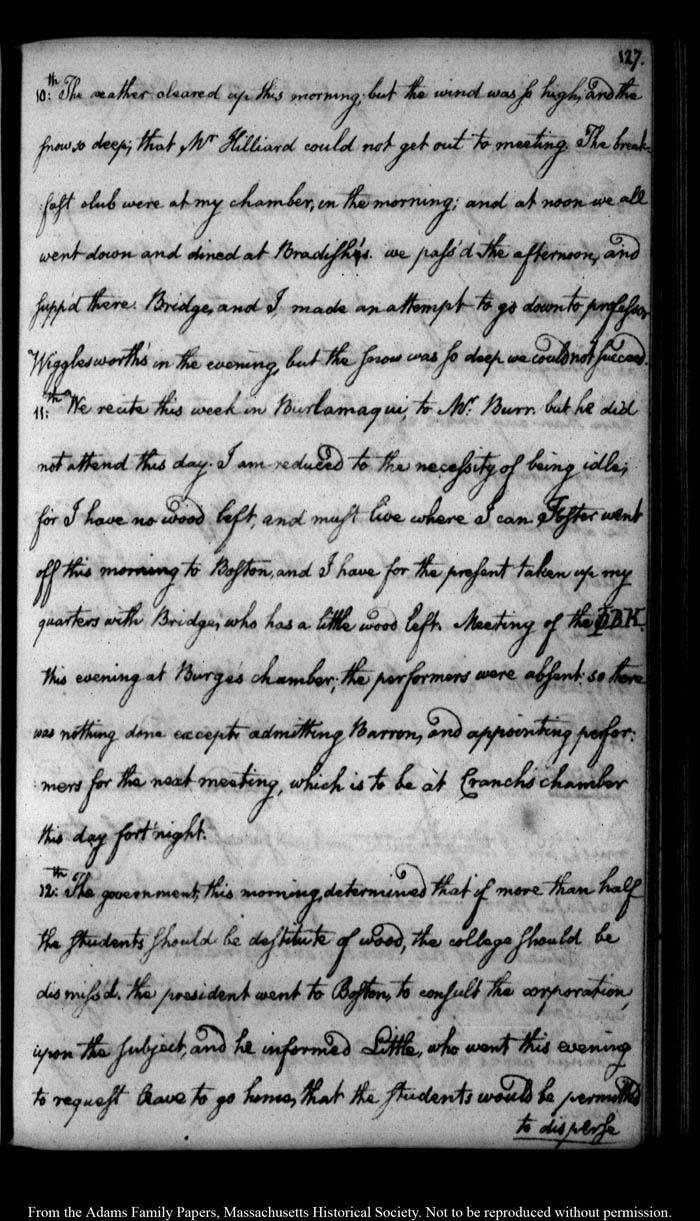 127.
10:th The weather cleared up this morning; but the wind was so high, and the
snow so deep, that Mr Hilliard could not get out to meeting. The break-
:fast club were at my chamber, in the morning; and at noon we all
went down and dined at Bradish's. we pass'd the afternoon, and
supp'd there. Bridge, and I, made an attempt to go down to professor
Wigglesworth's in the evening, but the snow was so deep we could not succeed.
11:th We recite this week in Burlamaqui, to Mr. Burr. but he did
not attend this day. I am reduced to the necessity of being idle;
for I have no wood left, and must live where I can. Foster went
off this morning to Boston, and I have for the present taken up my
quarters with Bridge, who has a little wood left. Meeting of the ΦBK.
this evening at Burge's chamber; the performers were absent: so there
was nothing done except admitting Barron, and appointing perfor:
:mers for the next meeting, which is to be at Cranch's chamber
this day fort'night.
12:th The government, this morning, determined that if more than half
the students should be destitute of wood, the college should be
dismiss'd. the president went to Boston, to consult the corporation,
upon the subject, and he informed Little, who went this evening
to request leave to go home, that the students would be permitted
to disperse
From the Adams Family Papers, Massachusetts Historical Society. Not to be reproduced without permission.